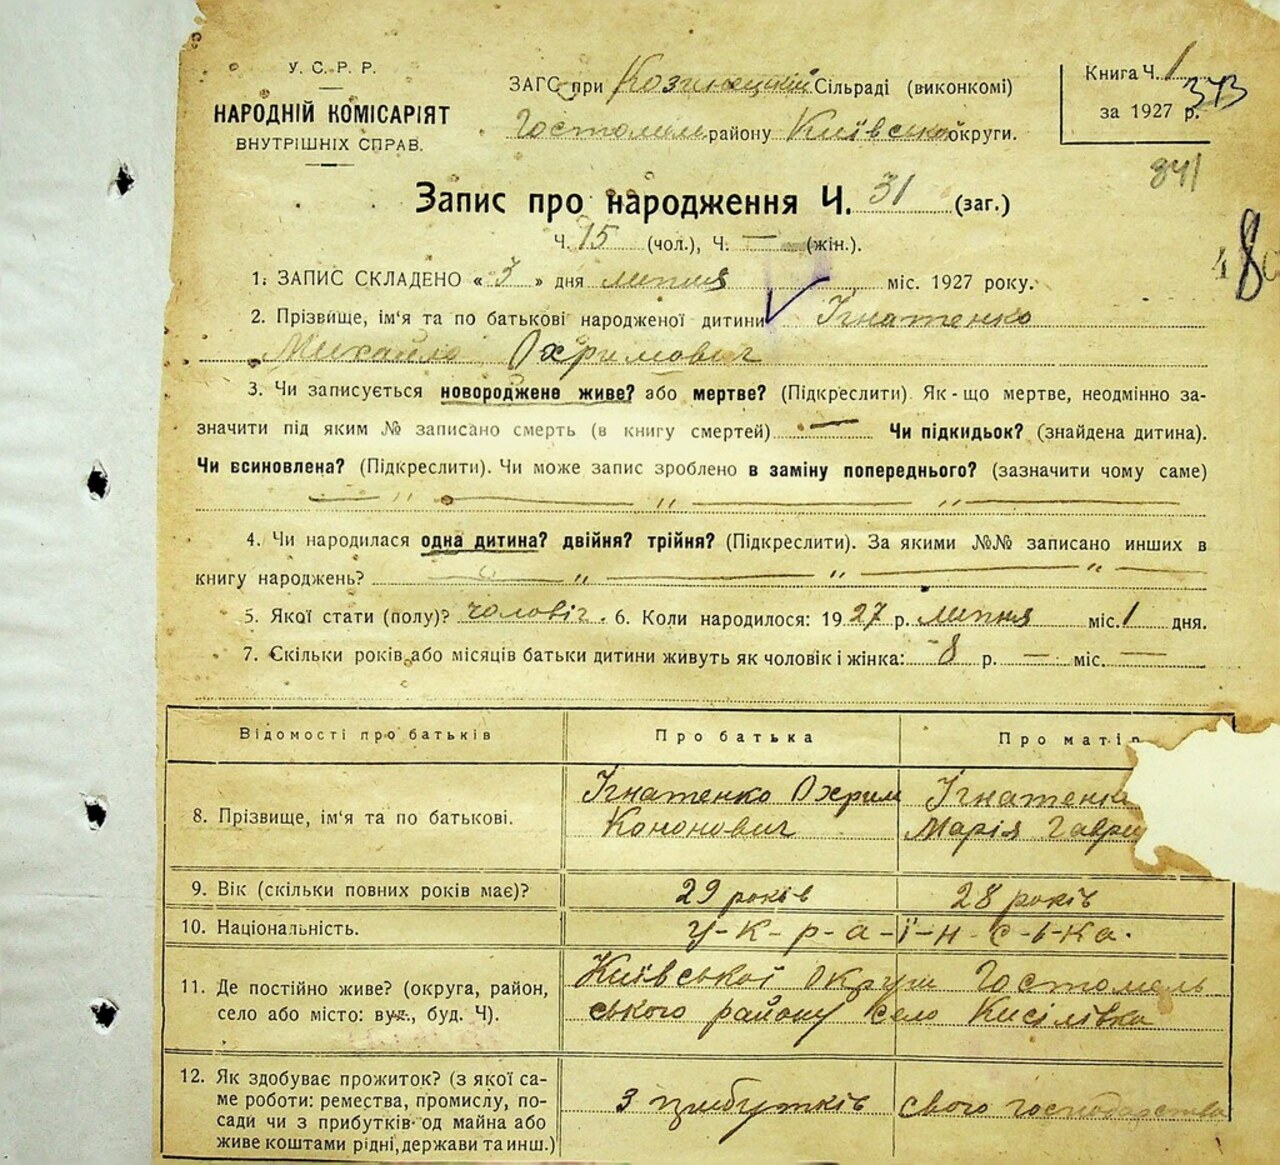 У. С. Р. Р.
НАРОДНІЙ КОМІСАРІЯТ
ВНУТРІШНІХ СПРАВ.
ЗАГС при Козинецкій Сільраді (виконкомі)
Гостомел району Київської округи.
Книга Ч. 1
за 1927 р.
343
341
Запис про народження Ч. 31 (заг.)
Ч. 15 (чол.), Ч. — (жін.).
8
1. ЗАПИС СКЛАДЕНО « 3 » дня липня міс. 1927 року.
2. Прізвище, ім'я та по батькові народженої дитини Ігнатенко
Михайло Охримович
3. Чи записується новороджене живе? або мертве? (Підкреслити). Як-що мертве, неодмінно за-
значити під яким № записано смерть (в книгу смертей) — Чи підкидьок? (знайдена дитина).
Чи всиновлена? (Підкреслити). Чи може запис зроблено в заміну попереднього? (зазначити чому саме)
— " — " — " —
4. Чи народилася одна дитина? двійня? трійня? (Підкреслити). За якими №№ записано инших в
книгу народжень? — " — " — " —
5. Якої стати (полу)? чоловіч. 6. Коли народилося: 1927 р. липня міс. 1 дня.
7. Скільки років або місяців батьки дитини живуть як чоловік і жінка: 8 р. — міс. —
Відомості про батьків Про батька Про матір
8. Прізвище, ім'я та по батькові. Ігнатенко Охрим Кононович Ігнатенк Марія Гаври
9. Вік (скільки повних років має)? 29 років 28 років
10. Національність. у-к-р-а-ї-н-с-ь-ка.
11. Де постійно живе? (округа, район,
село або місто: вул., буд. Ч).
Київської округи Гостомель
ського району село Кисілівка
12. Як здобуває прожиток? (з якої са-
ме роботи: ремества, промислу, по-
сади чи з прибутків од майна або
живе коштами рідні, держави та инш.)
З прибутків свого господарства